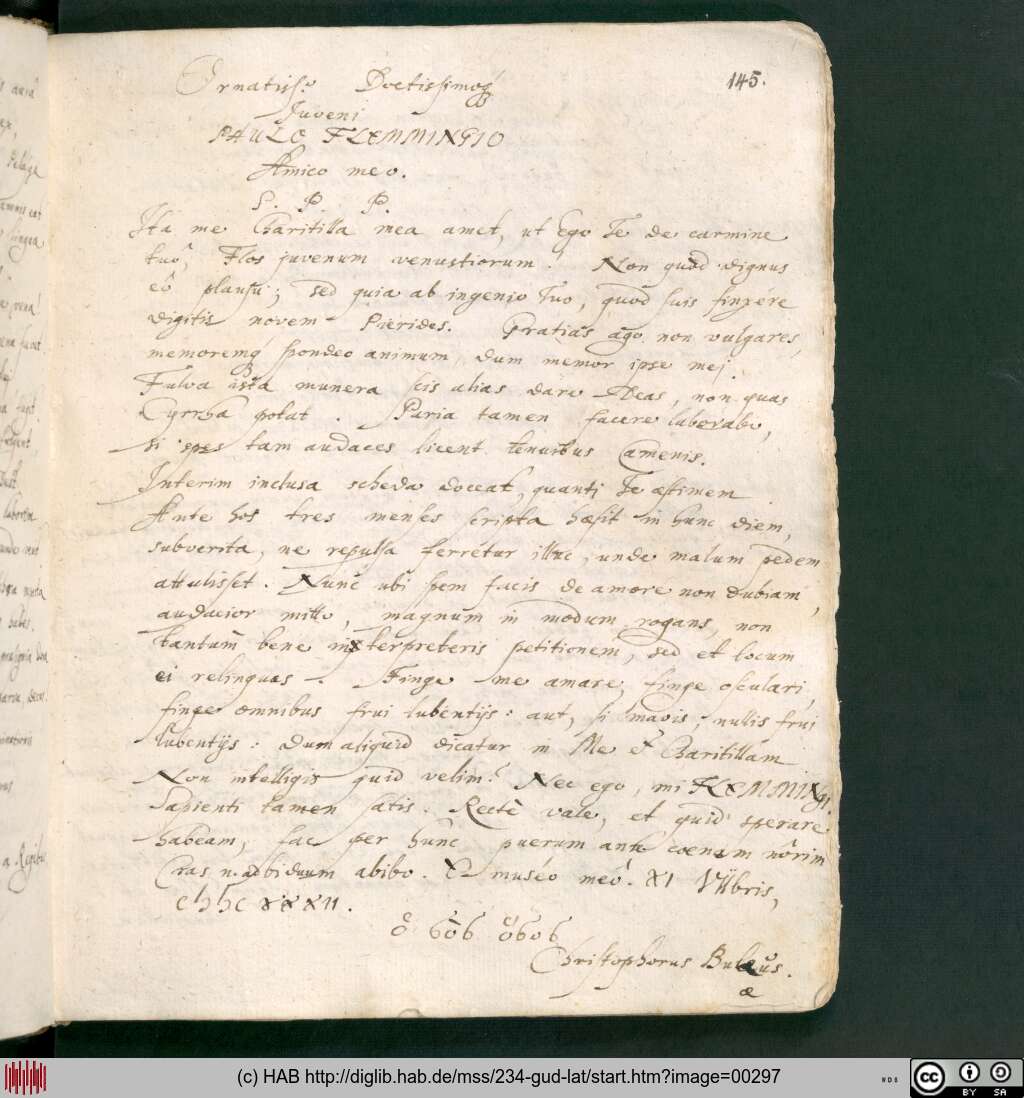 145.
Ornatiss.º Doctissimoq́
Juveni
PAULO FLEMMINGIO
Amico meo.
S. P. P.
Ita me Charitilla mea amet, ut Ego Te de carmine
tuô, Flos juvenum venustiorum! Non quòd dignus
eô plausu; sed quia ab ingenio Tuo, quod suis finxére
digitis novem Pierides. Gratias ago non vulgares,
memoremq́ spondeo animum, dum memor ipse mej.
Fulva ista munera scis alias dare Deas, non quas
Cyrrha potat. Paria tamen facere laborabo,
si spes tam audaces licent tenuibus Camenis.
Interim inclusa scheda doceat, quanti Te æstimem.
Ante hos tres menses scripta hæsit in hunc diem,
subverita, ne repulsa ferrétur illuc, unde malum pedem
attulisset. Nunc ubi spem facis de amore non dubiam,
audacior mitto, magnum in modum rogans, non
tantum bene interpreteris petitionem, sed et locum
ei relinquas. Finge me amare, finge osculari,
finge omnibus frui lubentijs: aut, si mavis, nullis frui
lubentijs: dum aliquid dicatur in Me et Charitillam
Non intelligis quid velim? Nec ego, mi FLEMMINGI,
Sapienti tamen satis. Rectè vale, et quid sperare
habeam, fac per hunc puerum ante coenam nôrim
Cras n. ad biduum abibo. E muséo meô. XI VIIbris,
XXXII.
Christophorus Bulæus.
æ
a Regibus
(c) HAB http://diglib.hab.de/mss/234-gud-lat/start.htm?image=00297
WDB
cc BY SA